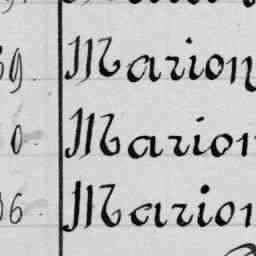 59. Marion
0 Marion
06 Marion